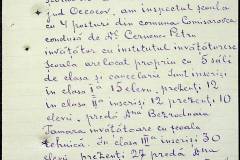 jud Cecocov, am inspectat școala
cu 4 posturi din comuna Comisarovca
condusă de Dl. Cernenco Petru
învățător cu institutul învățătoresc
școala are local propriu cu 5 săli
de clasă și cancelarie. Sunt înscriși
în clasa Ia 15 elevi. prezenți 12
în clasa IIa înscriși 12 prezenți 10
elevi. predă Dna Bezrodnaia
Tamara învățătoare cu școala
tehnică. În clasa IIIa înscriși 30
elevi prezenți 27 predă Dna